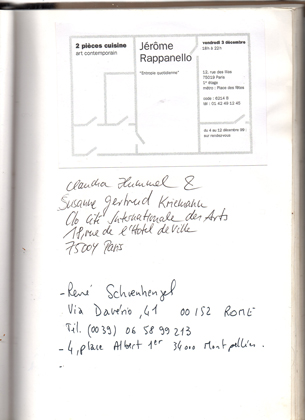 2 pièces cuisine
art contemporain
Jérôme
Rappanello
"Entropie quotidienne"
vendredi 3 décembre
18h à 22h
12, rue des Lilas
75019 Paris
5e étage
métro : Place des fêtes
code : 6214 B
tél : 01 42 49 12 40
du 4 au 12 décembre 99 -
sur rendez-vous
Claudia Hummel &
Susanne Gertrud Kriemann
c/o Cité Internationale des Arts
18, rue de l'Hotel de Ville
75004 Paris
- René Schoenhengel
Via Davério, 41 00152 ROME
Tél. (0039) 06 58 99 213
- 4, place Albert 1er 34000 Montpellier.
-